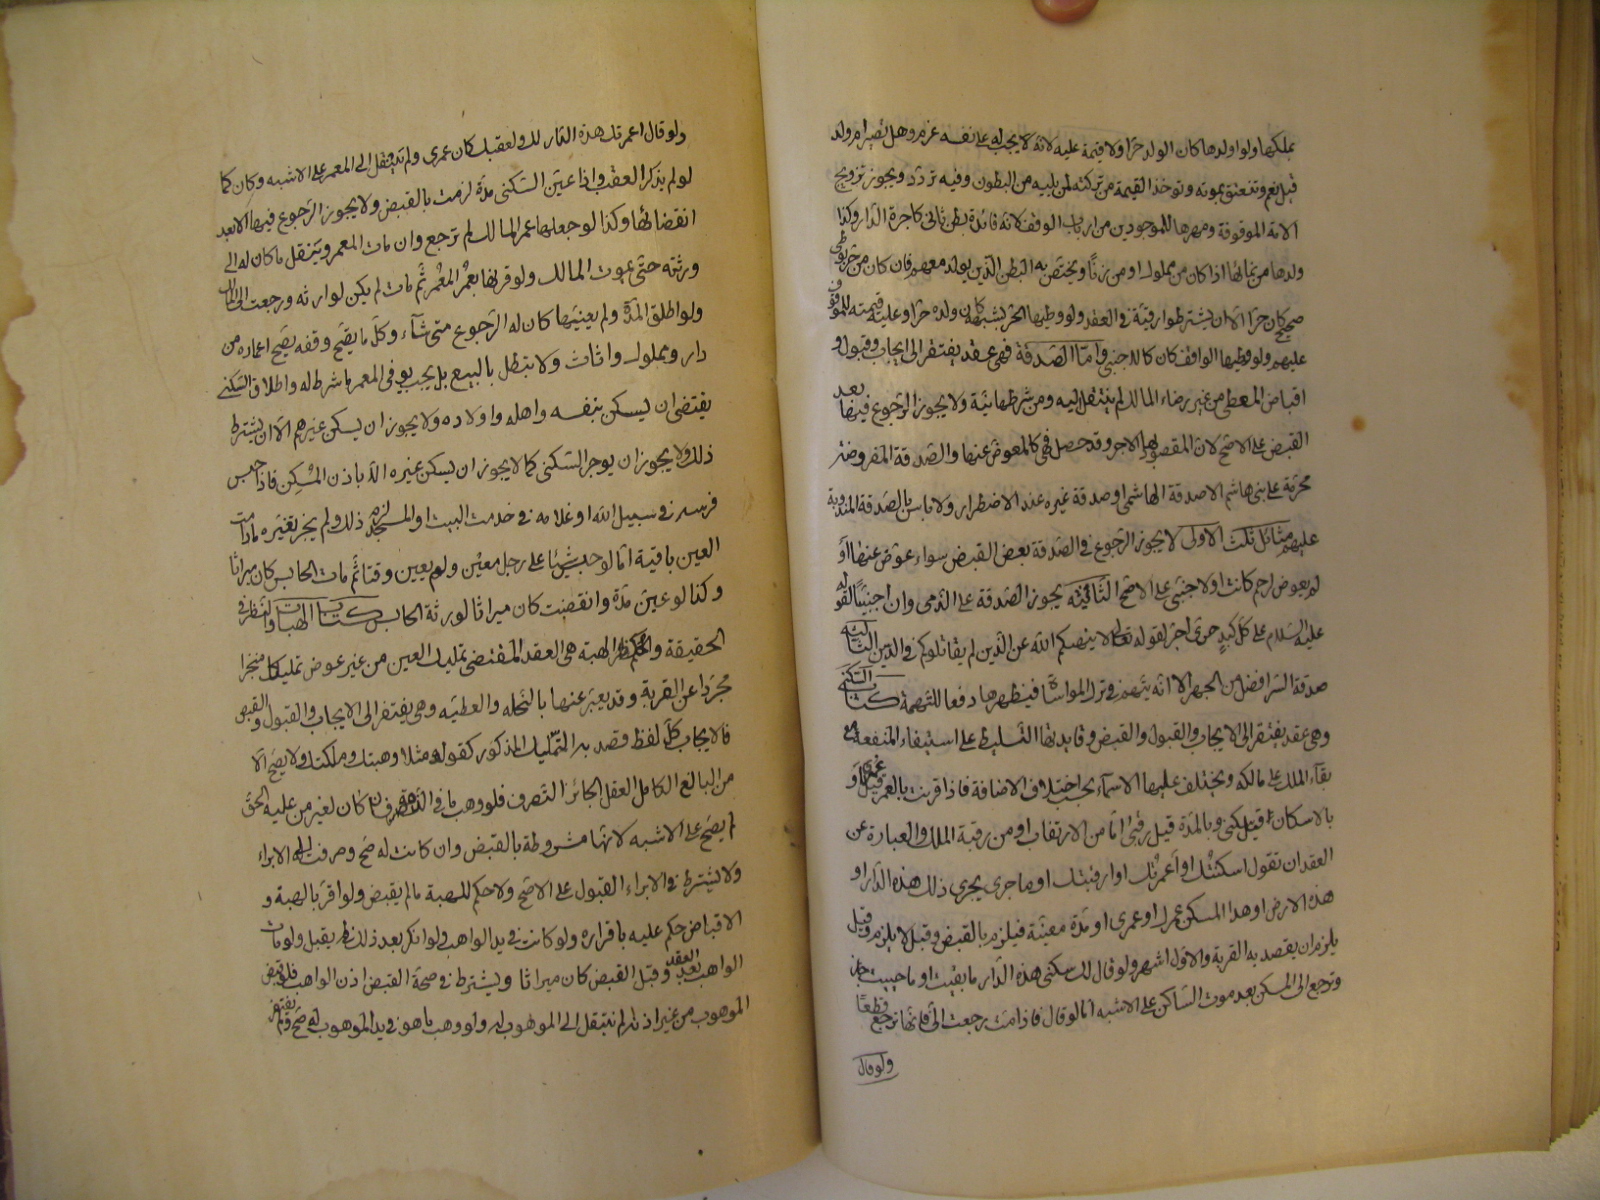 يملكها ولو اولدها كان الولد حرا ولا قيمة عليه لانه لا يجب له على نفسه غرم وهل تصير ام ولد
قيل نعم وتنعتق بموته وتوخذ القيمة من تركته لمن يليه من البطون وفيه تردد ويجوز تزويج
الامة الموقوفة ومهرها للموجودين من ارباب الوقف لانه فائدة بطن ثاني كاجرة الدار وكذا
ولدها من نمائها اذا كان من مملوك او من زنا ويختص به البطن الذين يولد معهم فان كان من حر بوطي
صحيح كان حرا الا ان يشترطوا رقيته في العقد ولو وطيها الحر بشبهة كان ولده حرا وعليه قيمته للموقوف
عليهم ولو وطيها الواقف كان كالاجنبي واما الصدقة فهي عقد يفتقر الى ايجاب وقبول و
اقباض المعطي من غير رضاء المالك لم ينتقل اليه ومن شرطها نية ولا يجوز الرجوع فيها بعد
القبض على الاصح لان المقصود بها الاجر وقد حصل فهي كالمعوض عنها والصدقة المفروضة
محرمة على بني هاشم الا صدقة الهاشمي او صدقة غيره عند الاضطرار ولا باس بالصدقة المندوبة
عليهم مسائل ثلث الاولى لا يجوز الرجوع في الصدقة بعض القبض سواء عوض عنها او
لم يعوض لرحم كانت او لاجنبي على الاصح الثانية يجوز الصدقة على الذمي وان اجنبيا لقوله
عليه السلام على كل كبد حرى اجر لقوله تعالى لا ينهيكم الله عن الذين لم يقاتلوكم في الدين الثالثة
صدقة السر افضل من الجهر الا انه يتهم في ترك المواساة فيظهرها دفعا للتهمة كتاب السكنى
وهي عقد يفتقر الى الايجاب والقبول والقبض وفايدتها التسليط على استيفاء المنفعة مع
بقاء الملك على مالكه ويختلف عليها الاسماء بحسب اختلاف الاضافة فاذا قرنت بالعمر قيل عمرى و
بالاسكان قيل سكنى وبالمدة قيل رقبى اما من الارتقاب او من رقبة الملك والعبارة عن
العقد ان تقول اسكنتك او اعمرتك او ارقبتك او ما جرى يجرى ذلك هذه الدار او
هذه الارض او هذا المسكن عمرك او عمرى او مدة معينة فيلزم بالقبض وقيل لا يلزم وقيل
يلزم ان يقصد به القربة والاول اشهر ولو قال لك سكنى هذه الدار ما بقيت او ما حييت جاز
وترجع الى المسكن بعد موت الساكن على الاشبه اما لو قال فاذا مت رجعت الي فانها ترجع قطعا
ولو قال
ولو قال اعمرتك هذه الدار لك ولعقبك كان عمرى ولم ينتقل الى المعمر على الاشبه وكان كما
لو لم يذكر العقب واذا عين السكنى مدة لزمت بالقبض ولا يجوز الرجوع فيها الا بعد
انقضائها وكذا لو جعلها عمر المالك لم ترجع وان مات المعمر وينتقل ما كان له الى
ورثته حتى يموت المالك ولو قرنها بعمر المعمر ثم مات لم يكن لوارثه ورجعت الى المالك
ولو اطلق المدة ولم يعينها كان له الرجوع متى شاء وكل ما يصح وقفه يصح اعماره من
دار ومملوك واثاث ولا تبطل بالبيع بل يجب يوفي المعمر ما شرط له واطلاق السكنى
يقتضي ان يسكن بنفسه واهله واولاده ولا يجوز ان يسكن غيرهم الا ان يشترط
ذلك ولا يجوز ان يوجر السكنى كما لا يجوز ان يسكن غيره الا باذن المسكن فاذا حبس
فرسه في سبيل الله او غلامه في خدمت البيت او المسجد لزم ذلك ولم يجز تغيره مادامت
العين باقية اما لو حبس شيئا على رجل معين ولم يعين وقتا ثم مات الحابس كان ميراثا
وكذا لو عين مدة وانقضت كان ميراثا لورثة الحابس كتاب الهبات والنظر في
الحقيقة والحكم النظر الهبة هي العقد المقتضي تمليك العين من غير عوض تمليكا منجزا
مجردا عن القربة وقد يعبر عنها بالنحله والعطيه وهي يفتقر الى الايجاب والقبول والقبض
فالايجاب كل لفظ قصد به التمليك المذكور كقوله مثلا وهبتك وملكتك ولا يصح الا
من البالغ الكامل العقل الجائز التصرف فلو وهب ما في الذمة فان كان لغير من عليه الحق
لم يصح على الاشبه لانها مشروطة بالقبض وان كانت له صح وصرفت الى الابراء
ولا يشترط في الابراء القبول على الاصح ولا حكم للهبة ما لم يقبض ولو اقر بالهبة و
الاقباض حكم عليه باقراره ولو كانت في يد الواهب ولو انكر بعد ذلك لم يقبل ولو مات
الواهب بعد العقد وقبل القبض كان ميراثا ويشترط في صحة القبض اذن الواهب فلو قبض
الموهوب من غير اذنه لم ينتقل الى الموهوب له ولو وهب ما هو في يد الموهوب له صح ولم يفتقر